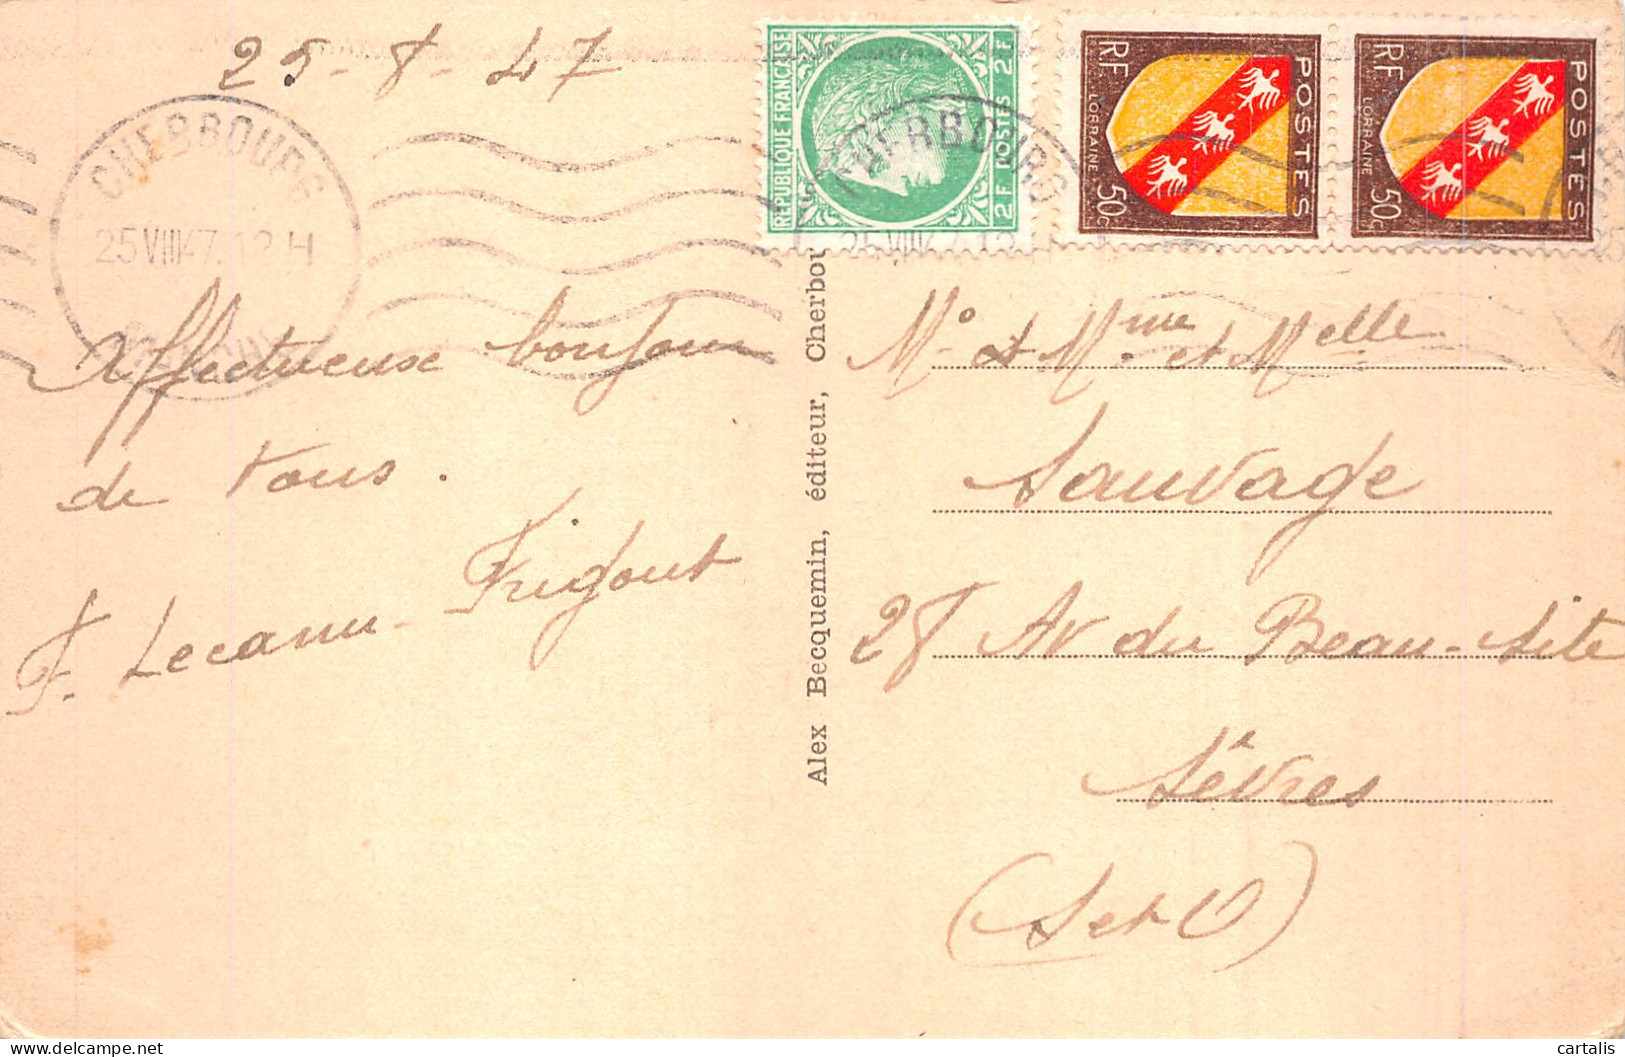 25-8-47
CHERBOURG
25 VIII 47. 12 H
REPUBLIQUE FRANCAISE
2F POSTES 2F
CHERBOURG
RF
LORRAINE
50c
POSTES
RF
LORRAINE
50c
POSTES
Affectueux bonjour
de tous.
Frigout
F. Lecanu-
Alex Becquemin, éditeur, Cherbou
Mr. et Mme et Melle
Sauvage
28 Av du Beau-Site
Sèvres
(S et O)
cartalis